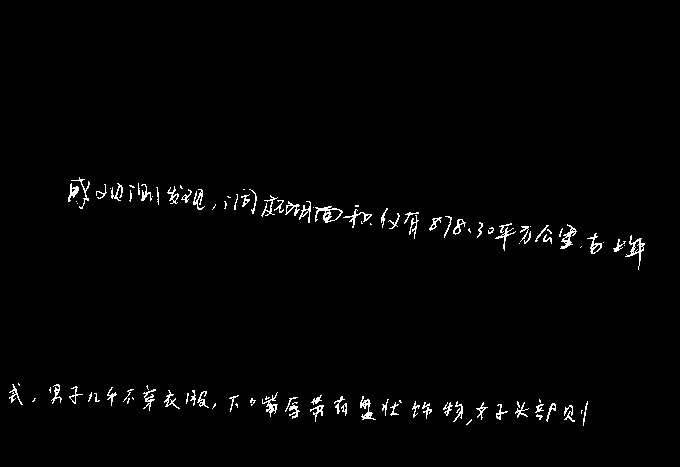 感观测发现，洞庭湖面积仅有878.30平方公里.古上年
式，男子几乎不穿衣服，下嘴唇带有盘状饰物,女子头部则